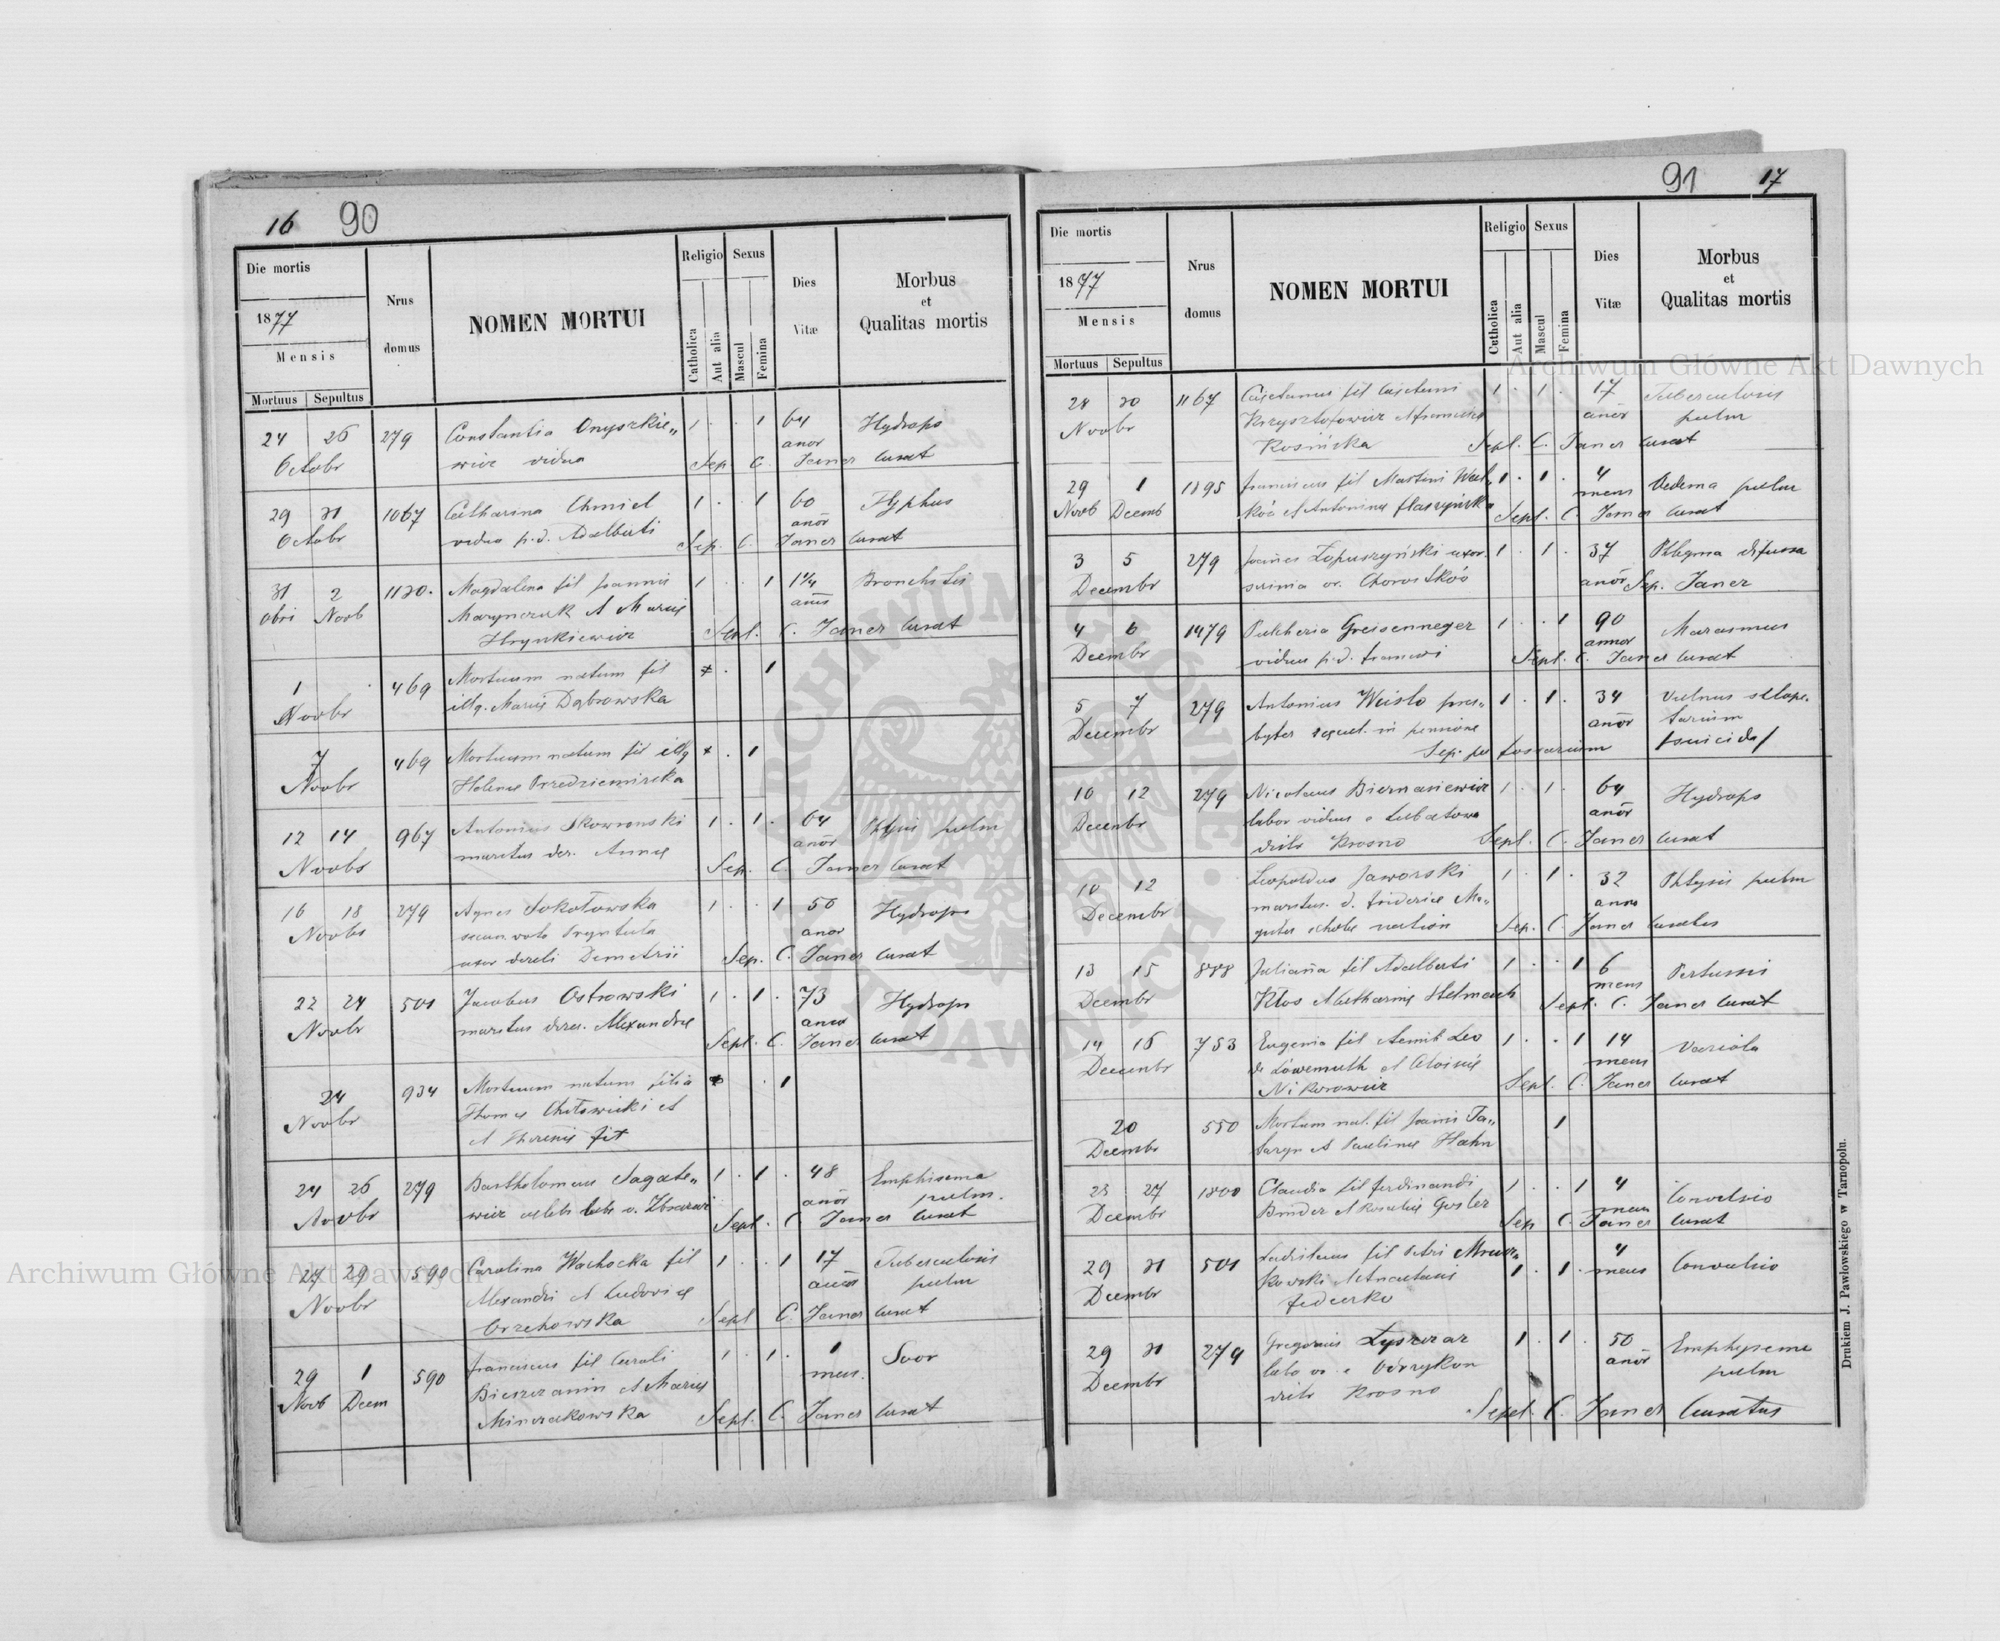 16 90
Die mortis
1877
Mensis
Mortuus Sepultus
Nrus domus
NOMEN MORTUI
Religio Sexus
Catholica Aut alia Mascul Femina
Dies Vitæ
Morbus et Qualitas mortis
24 26 279 Constantia Onyszkie„ 1 . . 1 64 Hydrops
Octobr wicz vidua anor
Sep. C. Janer Curat
29 31 1067 Catharina Chmiel 1 . . 1 60 Typhus
Octobr vidua p.d. Adalberti anor
Sep. C. Janer Curat
31 2 1130. Magdalena fil Joannis 1 . . 1 1 1/4 Bronchitis
Obri Novb Marynczuk et Mariæ
Hrynkiewicz Sepl. C. Janer Curat
1 469 Mortuum natum fil . 1
Novbr illg. Mariæ Dąbrowska
7 469 Mortuum natum fil illg . 1
Novbr Helenæ Przedzimirska
12 14 967 Antonius Skowronski 1 . 1 . 64 Phtysis pulm
Novbr maritus der. Annæ anor
Sep. C. Janer Curat
16 18 279 Agnes Sokołowska 1 . . 1 50 Hydrops
Novbr secun voto anor
uxor Demetrii Sep. C. Janer Curat
22 24 501 Jacobus Ostrowski 1 . 1 . 73 Hydrops
Novbr maritus Alexandræ anor
Sepl. C. Janer Curat
24 934 Mortuum natum filia . 1
Novbr Thomæ et
24 26 279 Bartholomeus Sagate„ 1 . 1 . 48 Emphisema
Novbr wicz anor pulm.
Sepl. C. Janer Curat
27 29 590 Carolina Wachocka fil 1 . . 1 17 Tuberculosis
Novbr Alexandri et Ludovicæ pulm
Orzechowska Sepl C. Janer Curat
29 1 590 Franciscus fil Caroli 1 . 1 . 1 Soor
Novb Decem et Mariæ mens.
Minczakowska Sepl. C. Janer Curat
91 17
Die mortis
1877
Mensis
Mortuus Sepultus
Nrus domus
NOMEN MORTUI
Religio Sexus
Catholica Aut alia Mascul Femina
Dies Vitæ
Morbus et Qualitas mortis
28 30 1167 Cajetanus fil Cajetani 1 . 1 . 17 Tuberculosis
Novbr Krzysztofowicz anor pulm
Rosińska Sepl. C. Janer Curat
29 1 1395 Franciscus fil Martini 1 . 1 . 4 Oedema pulm
Novb Decemb et Antoninæ mens
Sepl. C. Janer Curat
3 5 279 Joanes Łopuszyński 1 . 1 . 37
Decembr Chorostków anor Sep. Janer
4 6 1479 Pulcheria Greisenneger 1 . . 1 90 Marasmus
Decembr vidua p.d. Francisci annor
Sepl. C. Janer Curat
5 7 279 Antonius Wcisło pres„ 1 . 1 . 34 Vulnus sklope„
Decembr byter in pensione anor tarium
Sep. per fossarium /suicida/
10 12 279 Nicolaus Biernasiewicz 1 . 1 . 64 Hydrops
Decembr labor viduus e Lubatowa anor
distr Krosno Sepl. C. Janer Curat
10 12 Leopoldus Jaworski 1 . 1 . 32 Phtysis pulm
Decembr maritus. d. Fridericæ Ma„ anor
gister scholæ Sep. C. Janer Curatus
13 15 888 Juliana fil Adalberti 1 . . 1 6 Pertussis
Decembr Kłos et Catharinæ Stelmach mens
Sepl. C. Janer Curat
14 16 753 Eugenia fil Aemil Leo 1 . . 1 14 Variola
Decembr de Löwenmuth et Aloisiæ mens
Nikorowicz Sepl. C. Janer Curat
20 550 Mortuum nat. fil Joanis Ta„ 1
Decembr et Paulinæ Hahn
25 27 1300 Claudia fil Ferdinandi 1 . . 1 4 Convulsio
Decembr Binder et Rosaliæ Gosler mens
Sep C. Janer Curat
29 31 501 fil Petri 4 Convulsio
Decembr kowski 1 . 1 . mens
Fedeczko
29 31 279 Gregorius Łyszczaz 1 . 1 . 50 Emphysema
Decembr labo e Odrzykon anor pulm
distr Krosno
Sepl. C. Janer Curatus
Drukiem J. Pawłowskiego w Tarnopolu.
Archiwum Główne Akt Dawnych
Archiwum Główne Akt Dawnych
ARCHIWUM GŁÓWNE AKT DAWNYCH